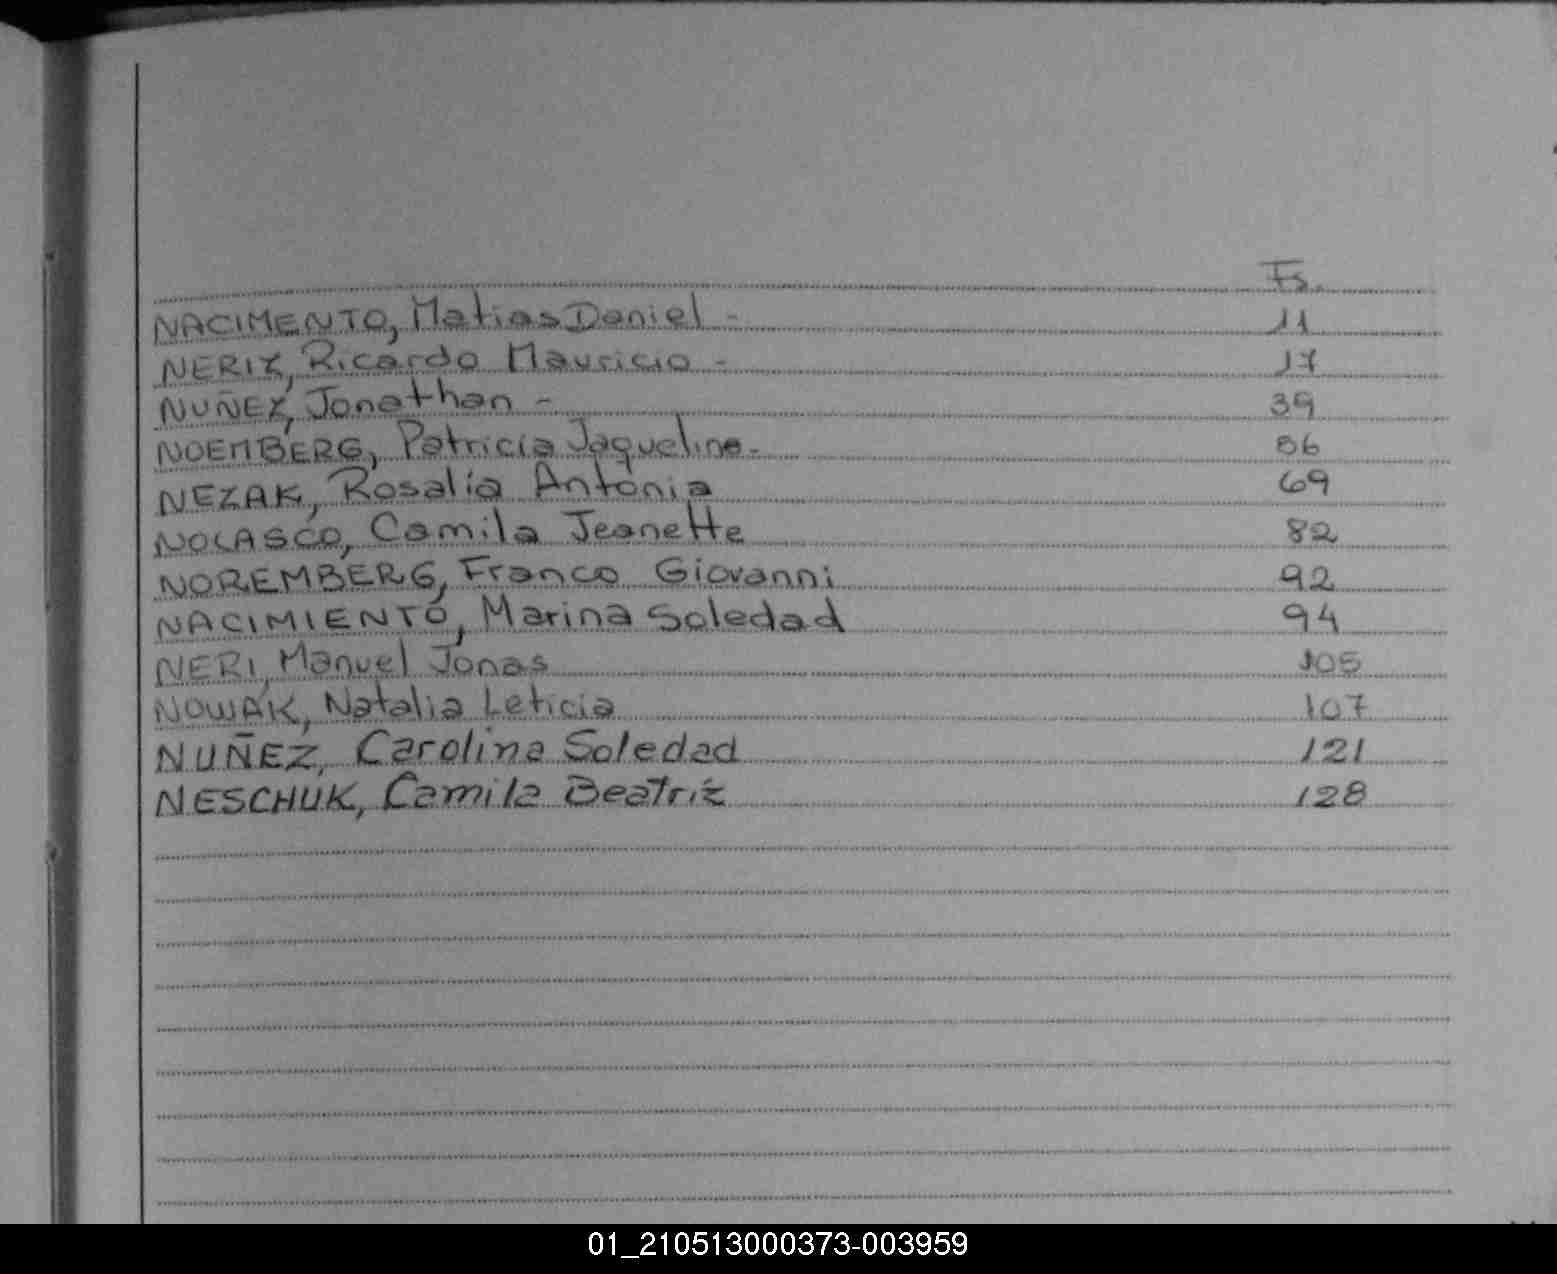 Fs.
NACIMENTO, Matias Daniel - 11
NERIZ, Ricardo Mauricio - 17
NUÑEZ, Jonathan - 39
NOEMBERG, Patricia Jaqueline. 56
NEZAK, Rosalía Antonia 69
NOLASCO, Camila Jeanette 82
NOREMBERG, Franco Giovanni 92
NACIMIENTO, Marina Soledad 94
NERI, Manuel Jonas 105
NOWAK, Natalia Leticia 107
NUÑEZ, Carolina Soledad 121
NESCHUK, Camila Beatriz 128
01_210513000373-003959